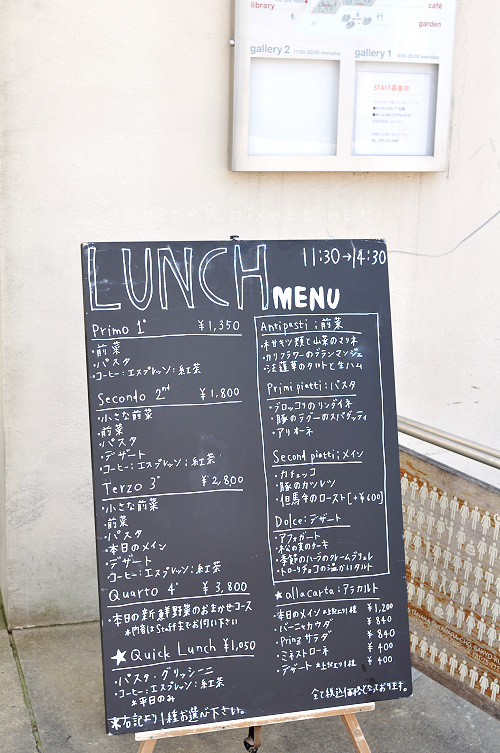 library
café
garden
gallery 2
gallery 1
STAFF募集中
LUNCH MENU
11:30→14:30
Primo 1° ¥1,350
・前菜
・パスタ
・コーヒー:エスプレッソ:紅茶
Secondo 2nd ¥1,800
・小さな前菜
・前菜
・パスタ
・デザート
・コーヒー:エスプレッソ:紅茶
Terzo 3° ¥2,800
・小さな前菜
・前菜
・パスタ
・本日のメイン
・デザート
コーヒー:エスプレッソ:紅茶
Quarto 4° ¥3,800
・本日の新鮮野菜のおまかせコース
★Quick Lunch ¥1,050
・パスタ・グリッシーニ
・コーヒー:エスプレッソ:紅茶
※平日のみ
※右記より1種お選び下さい。
Antipasti:前菜
・カリフラワーのブランマンジェ
・法蓮草のタルトと生ハム
Primi piatti:パスタ
・ブロッコリのリングイネ
・豚のラグーのスパゲッティ
・アリオーネ
Second piatti:メイン
・カチュッコ
・豚のカツレツ
・但馬牛のロースト[+¥600]
Dolce:デザート
・アフォガート
・松の実のケーキ
・季節のハーブのクレームブリュレ
★alla carta:アラカルト
本日のメイン ¥1,200
・バーニャカウダ ¥840
・Pringサラダ ¥840
・ミネストローネ ¥400
・デザート ¥400